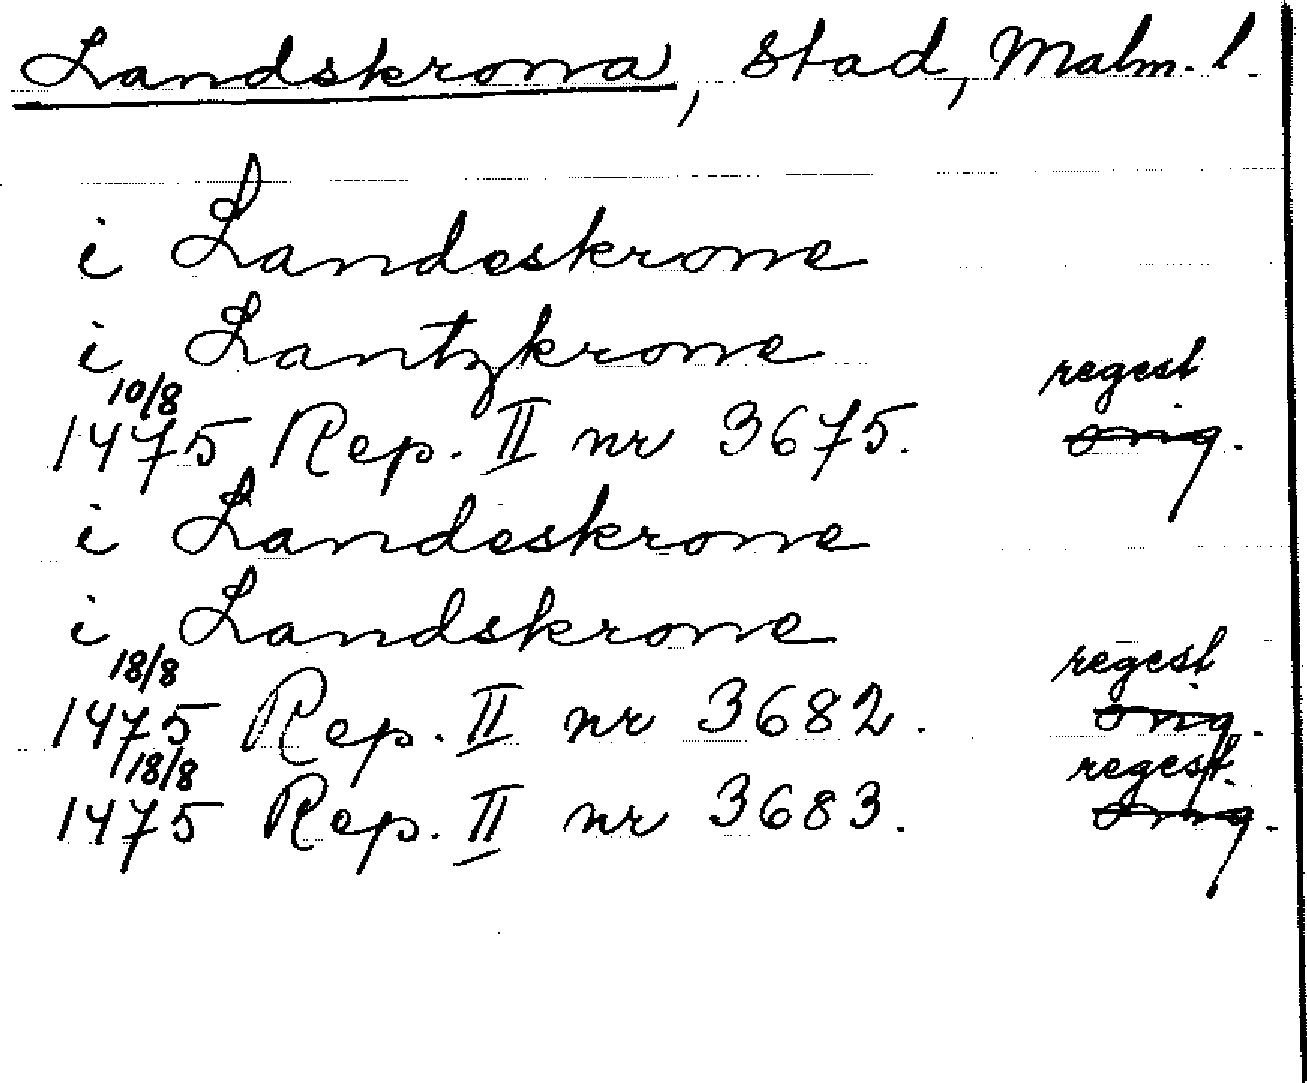 Landskrona, stad, Malm. l.
i Landeskrone
i Lantzkrone
10/8 regest
1475 Rep. II nr 3675. orig.
i Landeskrone
i Landskrone
18/8 regest
1475 Rep. II nr 3682. orig.
18/8 regest.
1475 Rep. II nr 3683. orig.